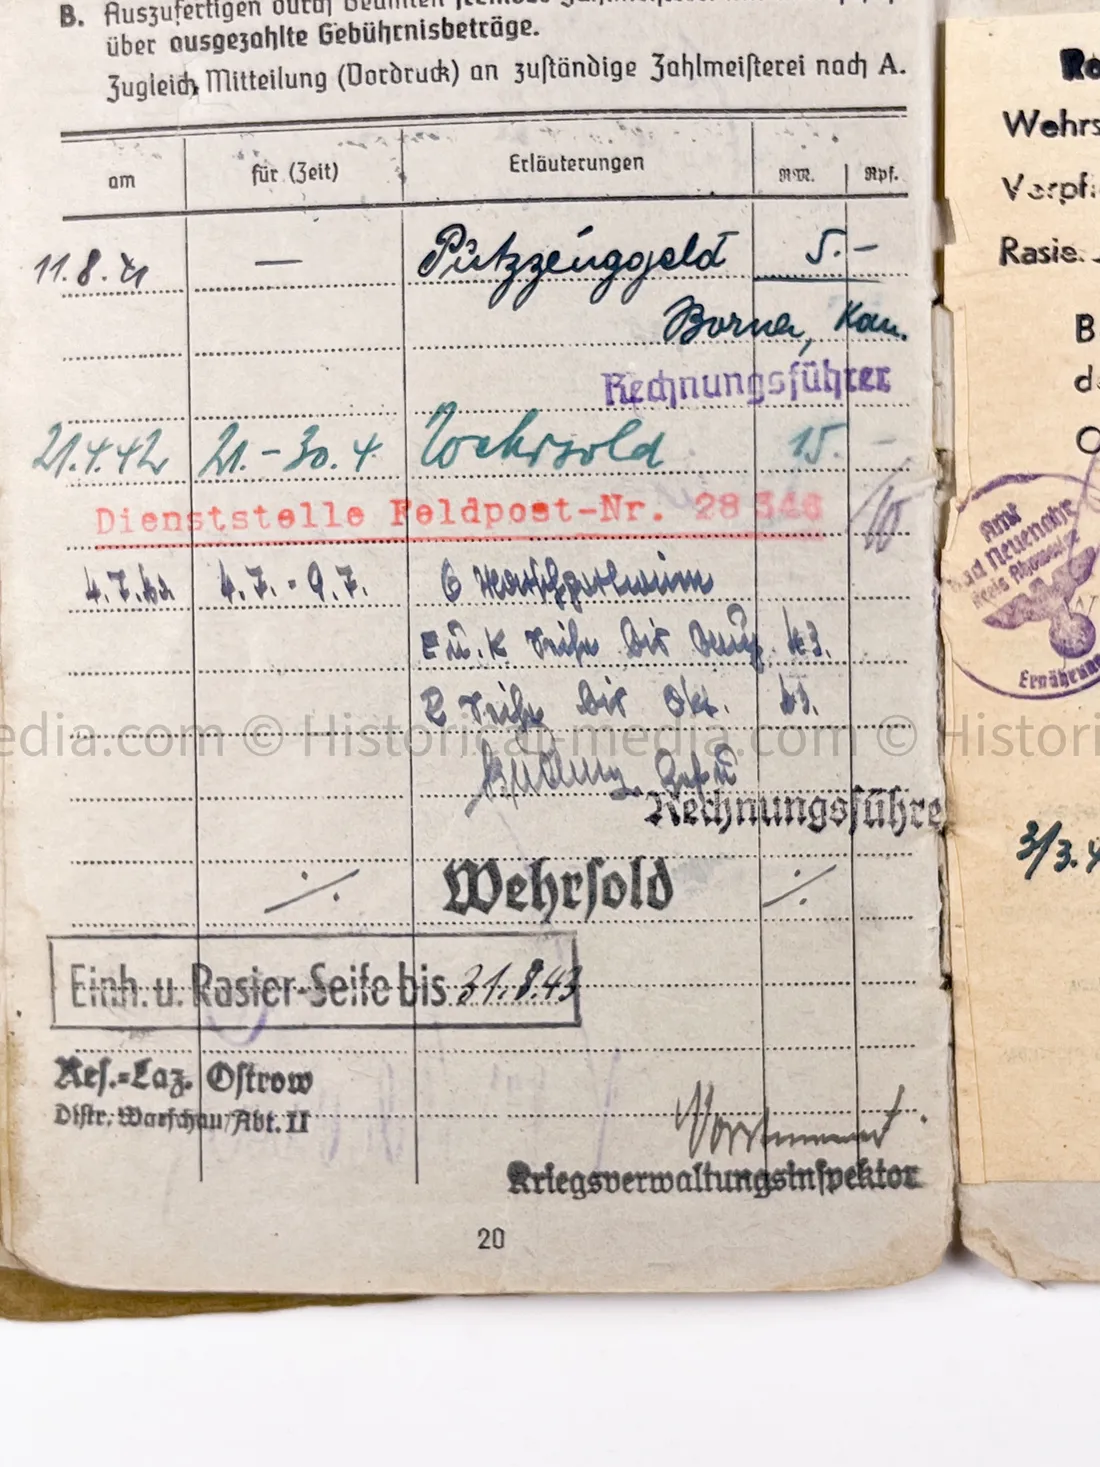 B. Auszufertigen durch Beamten
über ausgezahlte Gebührnisbeträge.
Zugleich Mitteilung (Vordruck) an zuständige Zahlmeisterei nach A.
am für (Zeit) Erläuterungen RM. Rpf.
11.8.41 — Putzzeuggeld 5.-
Borna, Kan.
Rechnungsführer
21.4.42 21.-30.4 Wehrsold 15. -
Dienststelle Feldpost-Nr. 28346
4.7. 4.7.-9.7. 6
E u. K Seife bis 43.
R Seife bis Okt. 43.
Rechnungsführe
·/· Wehrsold ·/·
Einh. u. Rasier-Seife bis 31.8.43
Res.-Laz. Ostrow
Distr. Warschau/Abt. II
Kriegsverwaltungsinspektor
20
Wehrs
Verpf
Rasie
B
d
O
Amt
Bad Neuenahr
Kreis
Ernährun
3/3.4
edia.com © Historical-media.com © Histori